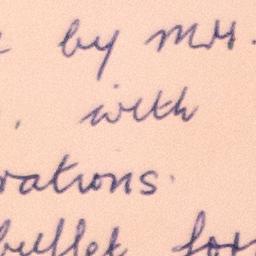 by Mrs.
with
rations.
buffet for